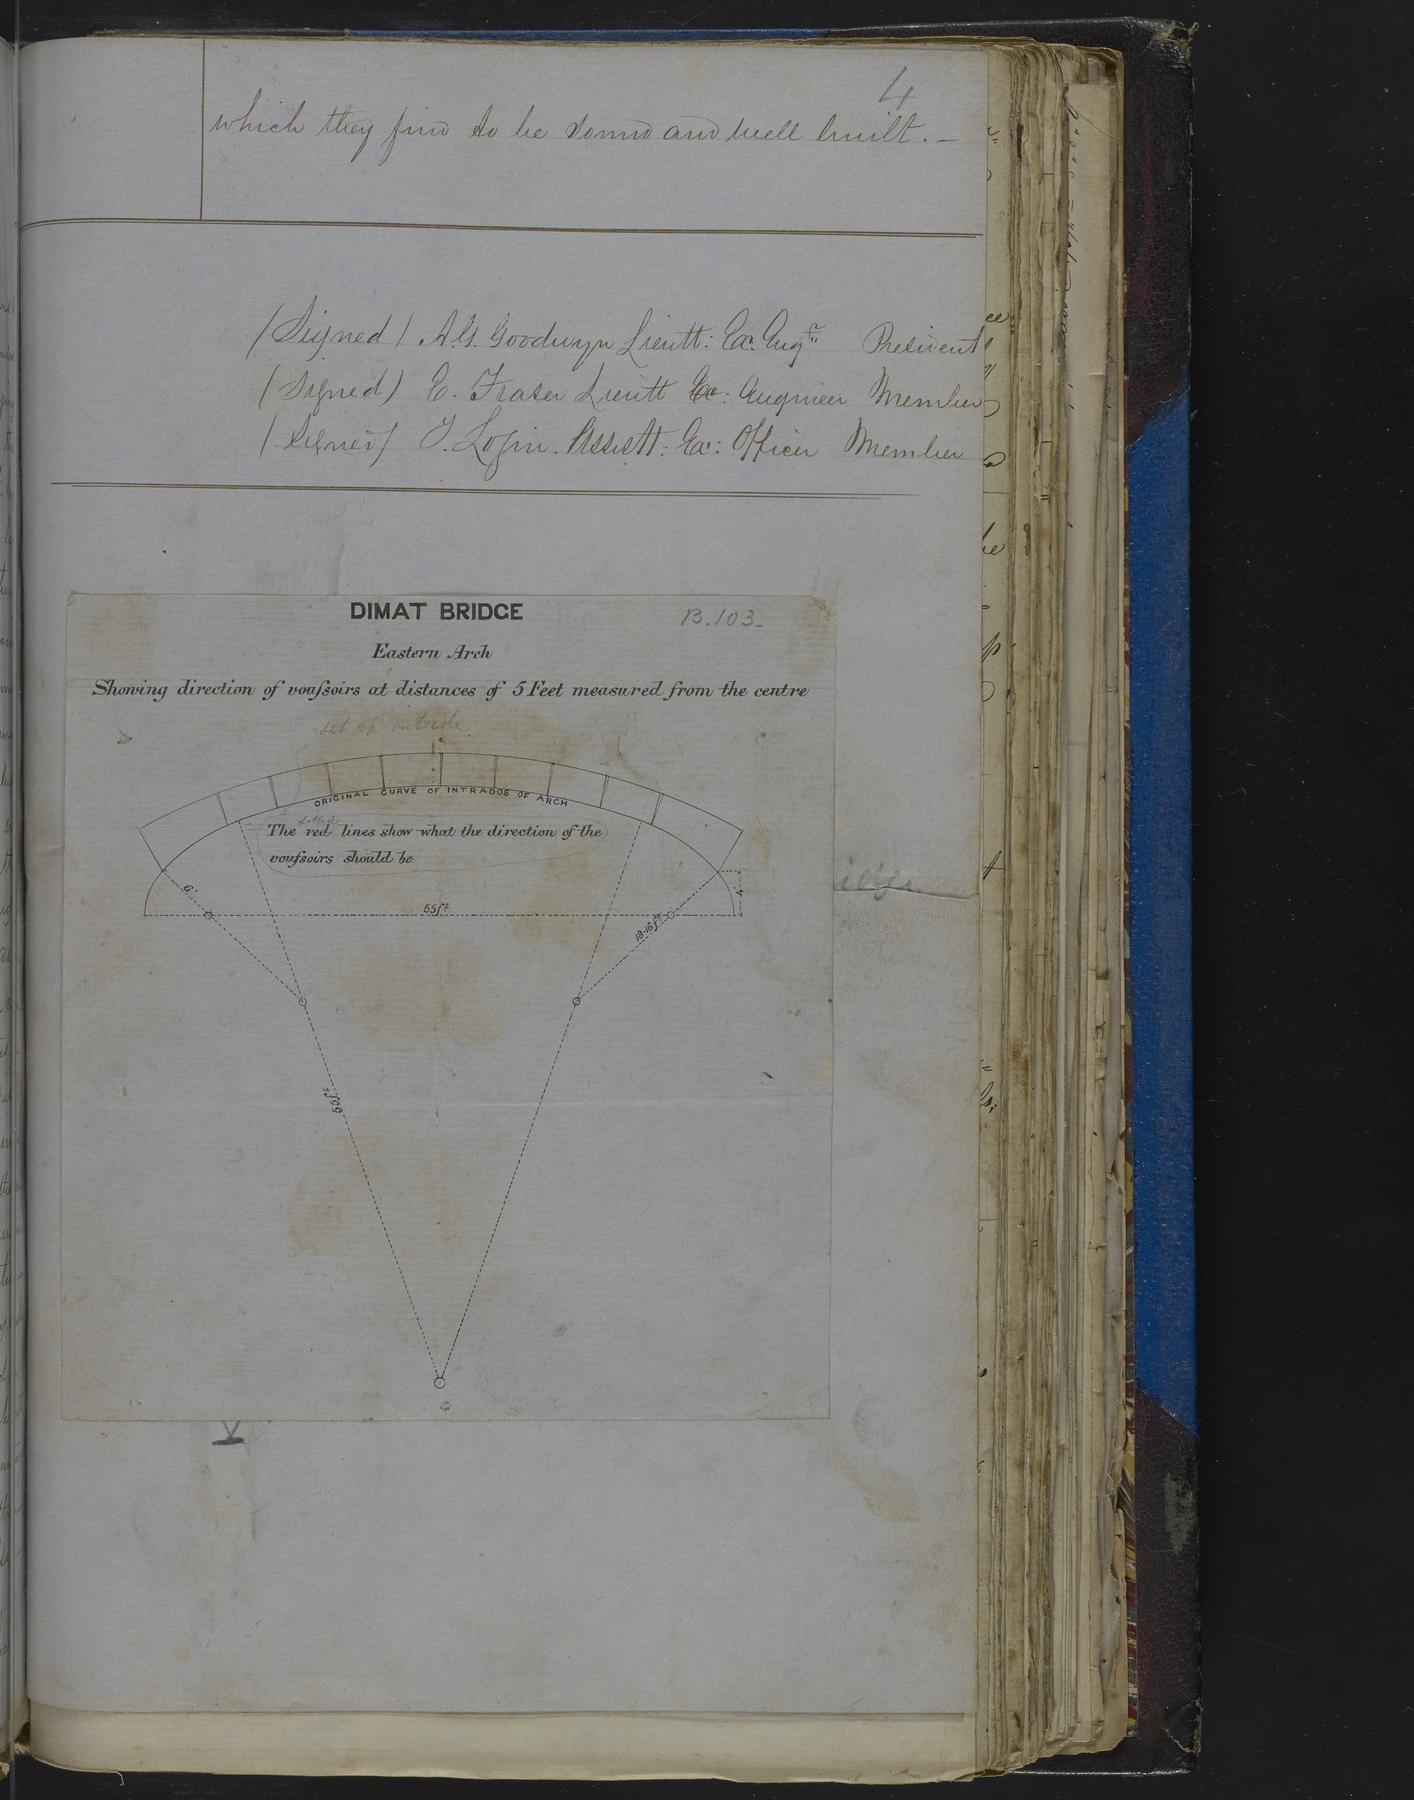 4
which they find to be sound and well built. —
(Signed) A.G. Goodwyn Lieutt: Ex. Engr. President
(Signed) E. Fraser Lieutt Ex: Engineer Member
(Signed) T. Login. Assistt: Ex: Officer Member
DIMAT BRIDGE
B.103_
Eastern Arch
Showing direction of vouſsoirs at distances of 5 Feet measured from the centre
set up outside
ORIGINAL CURVE OF INTRADOS OF ARCH
dotted
The red lines show what the direction of the
vouſsoirs should be
6'
4'
55ft
18.16ft
55ft